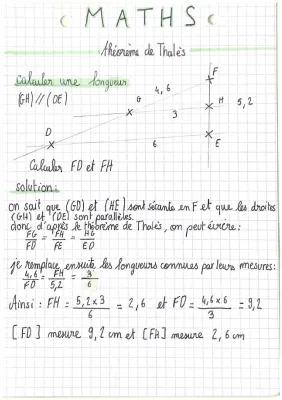 MATHS
théorème de Thalès
Calculer une longueur
(GH) // (DE)
F
4,6
G
H
5,2
3
D
6
E
Calculer FD et FH
solution:
on sait que (GD) et (HE) sont sécante en F et que les droites
(GH) et (DE) sont parallèles.
donc d'après le théorème de Thalès, on peut écrire:
FG/FD = FH/FE = HG/ED
je remplace ensuite les longueurs connues par leurs mesures:
4,6/FD = FH/5,2 = 3/6
Ainsi : FH = 5,2 x 3/6 = 2,6 et FD = 4,6 x 6/3 = 9,2
[FD] mesure 9,2 cm et [FH] mesure 2,6 cm